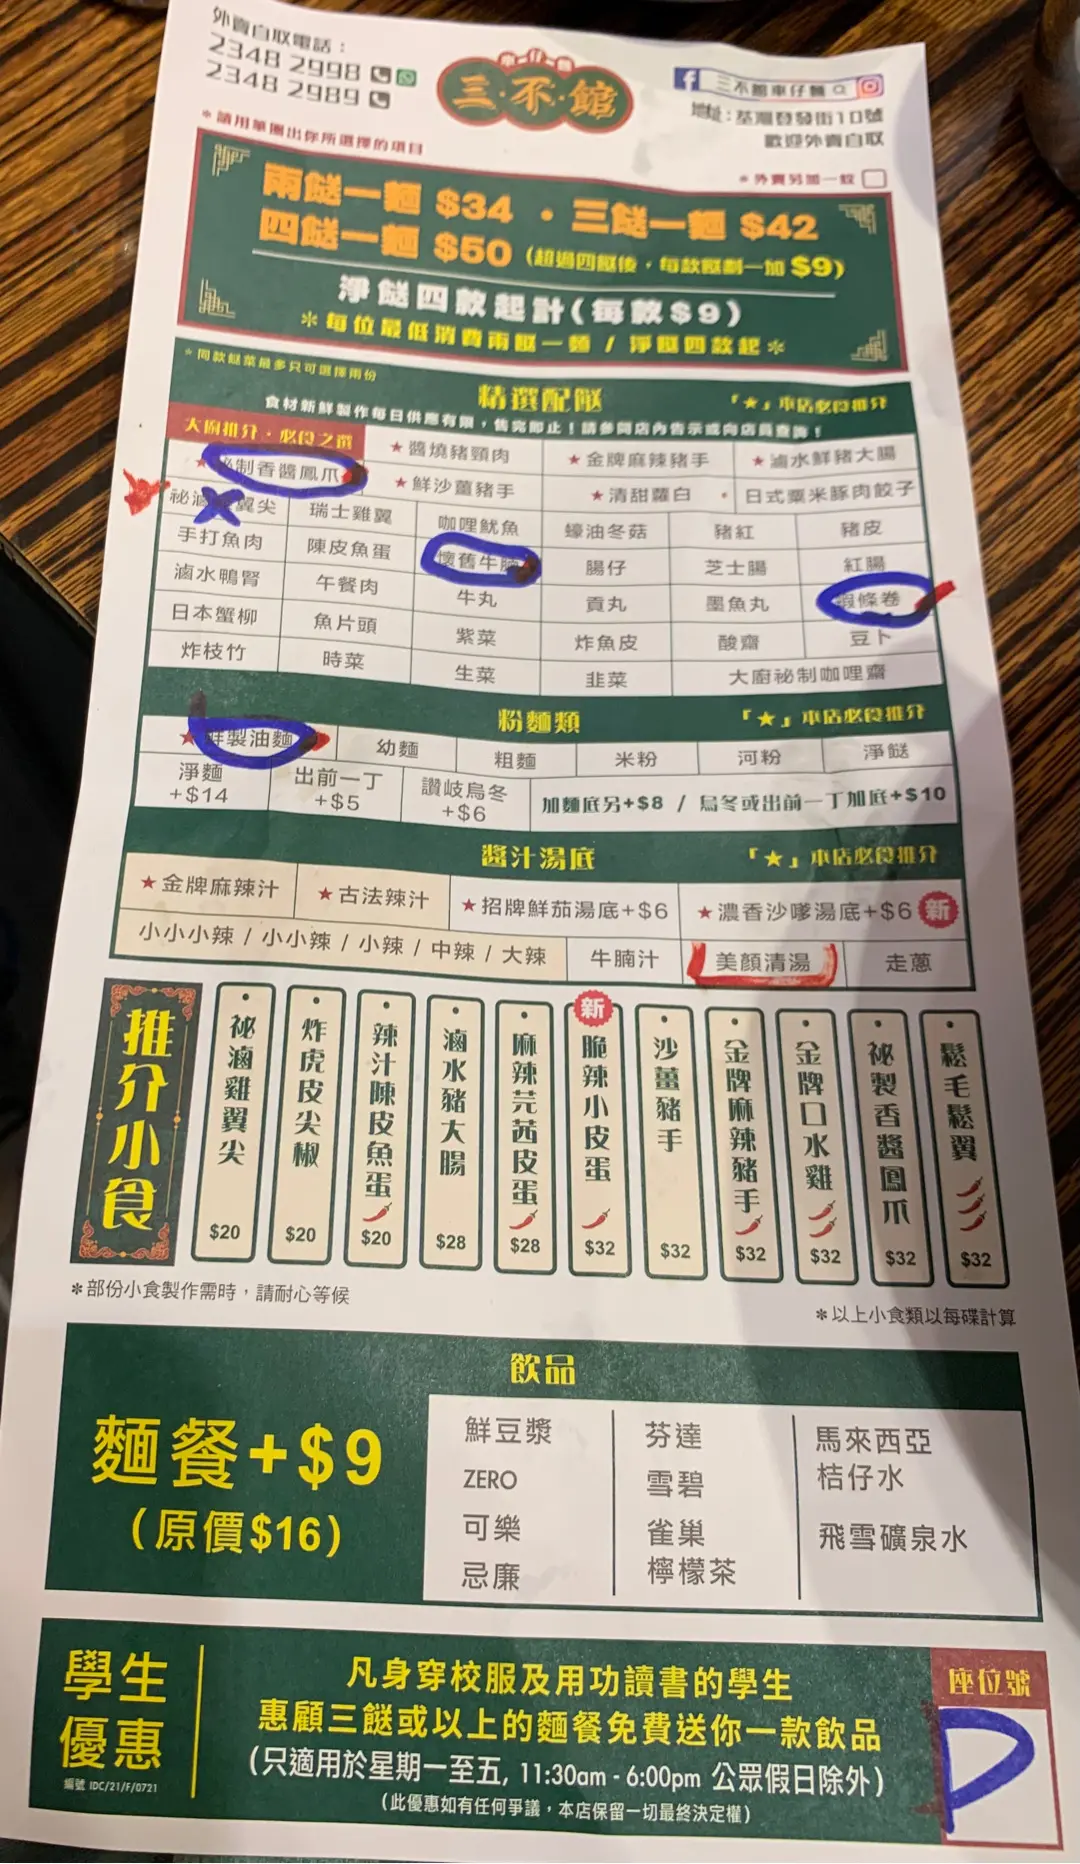 外賣自取電話：
2348 2998
2348 2989
車仔麵
三·不·館
三不館車仔麵
地址：荃灣登發街10號
歡迎外賣自取
*請用筆圈出你所選擇的項目
*外賣另加一蚊
兩餸一麵 $34 · 三餸一麵 $42
四餸一麵 $50 (超過四餸後，每款餸劃一加 $9)
淨餸四款起計(每款$9)
*每位最低消費兩餸一麵 / 淨餸四款起*
*同款餸菜最多只可選擇兩份
精選配餸
「★」本店必食推介
食材新鮮製作每日供應有限，售完即止！請參閱店內告示或向店員查詢！
大廚推介·必食之選
★醬燒豬頸肉 ★金牌麻辣豬手 ★滷水鮮豬大腸
★秘制香醬鳳爪 ★鮮沙薑豬手 ★清甜蘿白 日式粟米豚肉餃子
祕滷雞翼尖 瑞士雞翼 咖喱魷魚 蠔油冬菇 豬紅 豬皮
手打魚肉 陳皮魚蛋 懷舊牛腩 腸仔 芝士腸 紅腸
滷水鴨腎 午餐肉 牛丸 貢丸 墨魚丸 蝦條卷
日本蟹柳 魚片頭 紫菜 炸魚皮 酸齋 豆卜
炸枝竹 時菜 生菜 韭菜 大廚祕制咖喱齋
粉麵類
「★」本店必食推介
★鮮製油麵 幼麵 粗麵 米粉 河粉 淨餸
淨麵 +$14 出前一丁 +$5 讚岐烏冬 +$6 加麵底另+$8 / 烏冬或出前一丁加底+$10
醬汁湯底
「★」本店必食推介
★金牌麻辣汁 ★古法辣汁 ★招牌鮮茄湯底+$6 ★濃香沙嗲湯底+$6 新
小小小辣 / 小小辣 / 小辣 / 中辣 / 大辣 牛腩汁 美顏清湯 走蔥
推介小食
祕滷雞翼尖 $20
炸虎皮尖椒 $20
辣汁陳皮魚蛋 $20
滷水豬大腸 $28
麻辣芫茜皮蛋 $28
新 脆辣小皮蛋 $32
沙薑豬手 $32
金牌麻辣豬手 $32
金牌口水雞 $32
祕製香醬鳳爪 $32
鬆毛鬆翼 $32
*部份小食製作需時，請耐心等候
*以上小食類以每碟計算
飲品
麵餐+$9
(原價$16)
鮮豆漿 芬達 馬來西亞
ZERO 雪碧 桔仔水
可樂 雀巢 飛雪礦泉水
忌廉 檸檬茶
學生
優惠
編號 IDC/21/F/0721
凡身穿校服及用功讀書的學生
惠顧三餸或以上的麵餐免費送你一款飲品
(只適用於星期一至五, 11:30am - 6:00pm 公眾假日除外)
(此優惠如有任何爭議，本店保留一切最終決定權)
座位號
P